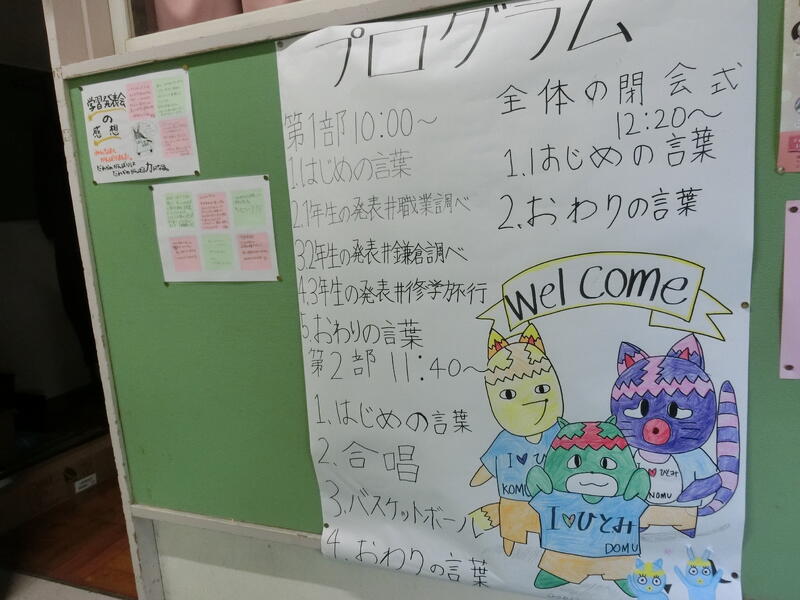 プログラム
第1部10:00～
1.はじめの言葉
2.1年生の発表#職業調べ
3.2年生の発表#鎌倉調べ
4.3年生の発表#修学旅行
5.おわりの言葉
第2部 11:40～
1.はじめの言葉
2.合唱
3.バスケットボール
4.おわりの言葉
全体の閉会式
12:20～
1.はじめの言葉
2.おわりの言葉
Welcome
I♥ひ
KOMU
I♥ひとみ
NOMU
I♥ひとみ
DOMU
学習発表会
の
感想